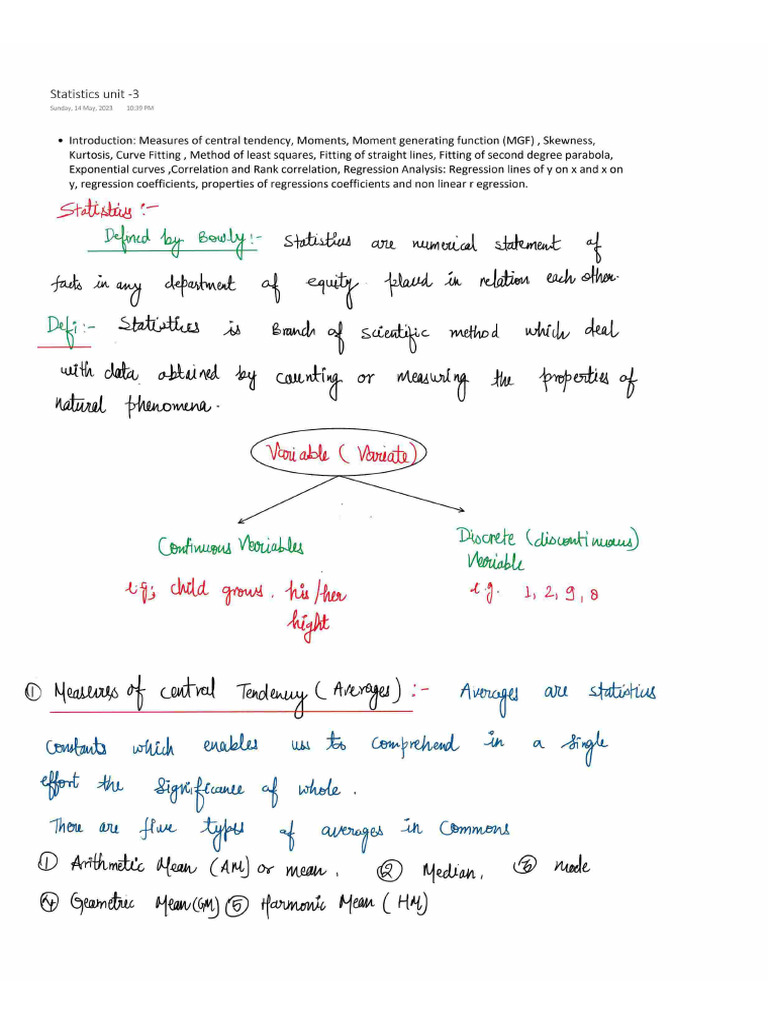 Statistics unit -3
Sunday, 14 May, 2023 10:39 PM
• Introduction: Measures of central tendency, Moments, Moment generating function (MGF) , Skewness,
Kurtosis, Curve Fitting , Method of least squares, Fitting of straight lines, Fitting of second degree parabola,
Exponential curves ,Correlation and Rank correlation, Regression Analysis: Regression lines of y on x and x on
y, regression coefficients, properties of regressions coefficients and non linear r egression.
Statistics :-
Defined by Bowly:- Statistics are numerical statement of
facts in any department of equity placed in relation each other.
Defi:- Statistices is Branch of scientific method which deal
with data obtained by counting or measuring the properties of
natural phenomena.
Variable ( Variate)
Continuous Variables
Discrete (discontinuous)
Variable
e.g; child grows. his/her
hight
e.g. 1, 2, 9, 8
① Measures of central Tendency ( Averages) :- Averages are statistics
constants which enables us to comprehend in a single
effort the significance of whole .
There are five types of averages in commons
① Arithmetic Mean (AM) or mean , ② Median, ③ mode
④ Geametric Mean (GM) ⑤ Harmonic Mean ( HM)